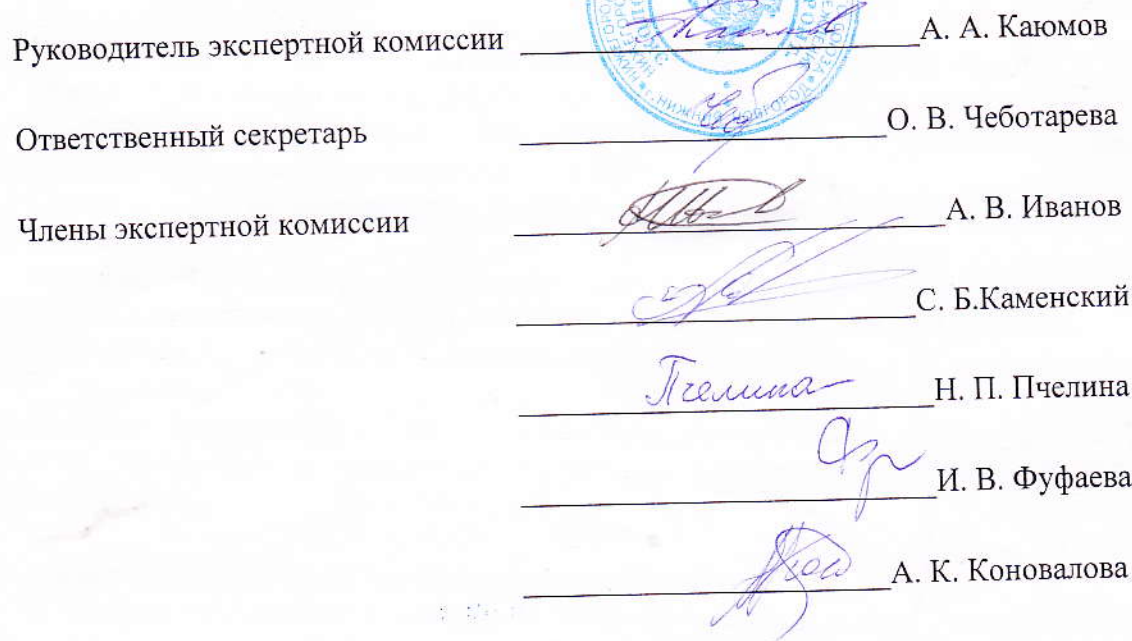 Руководитель экспертной комиссии А. А. Каюмов
НИЖНИЙ НОВГОРОД
Ответственный секретарь О. В. Чеботарева
Члены экспертной комиссии А. В. Иванов
С. Б.Каменский
Пчелина Н. П. Пчелина
И. В. Фуфаева
А. К. Коновалова